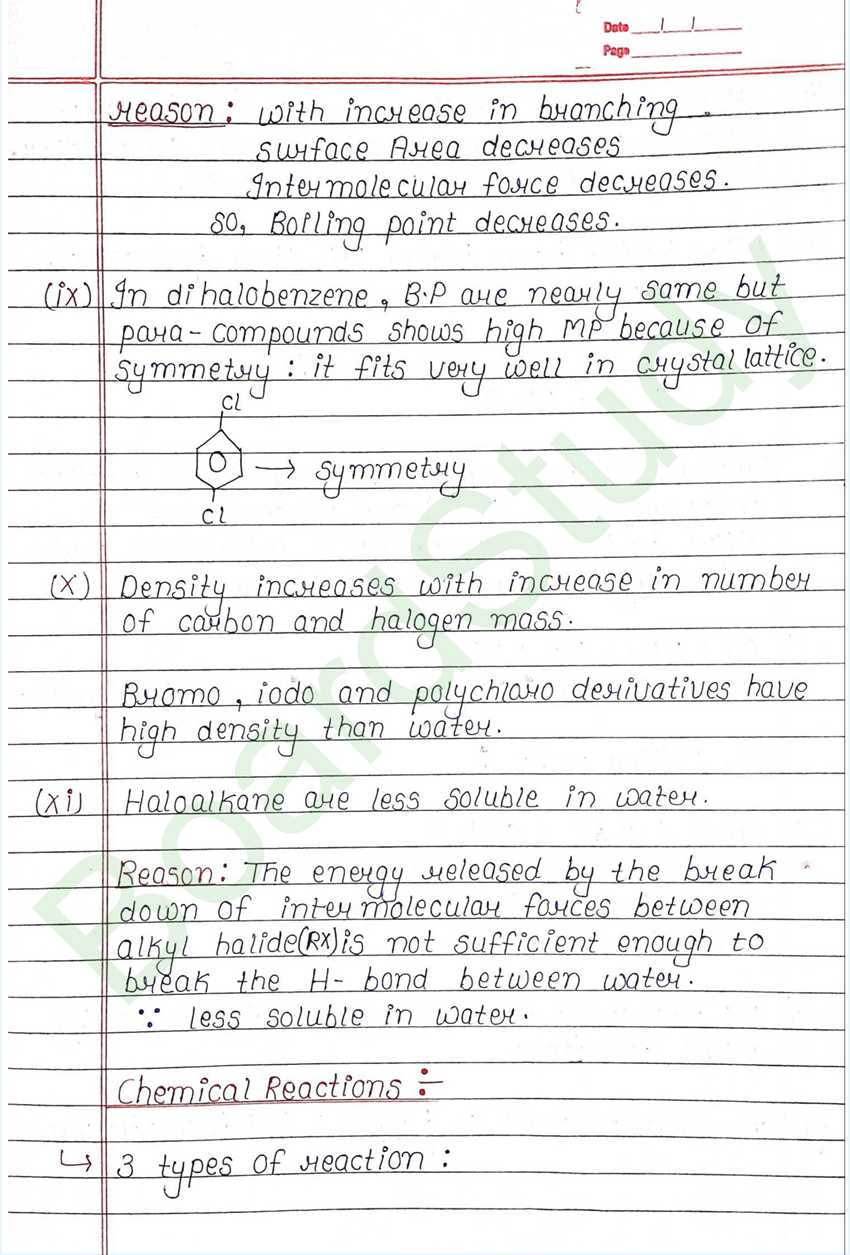 Date / /
Page
reason: with increase in branching.
surface Area decreases
Intermolecular force decreases.
so, Boiling point decreases.
(ix) In dihalobenzene, B.P are nearly same but
para-compounds shows high MP because of
symmetry: it fits very well in crystal lattice.
Cl
→ symmetry
Cl
(x) Density increases with increase in number
of carbon and halogen mass.
Bromo, iodo and polychloro derivatives have
high density than water.
(xi) Haloalkane are less soluble in water.
Reason: The energy released by the break
down of intermolecular forces between
alkyl halide(RX) is not sufficient enough to
break the H- bond between water.
∵ less soluble in water.
Chemical Reactions :-
↳ 3 types of reaction:
BoardStudy